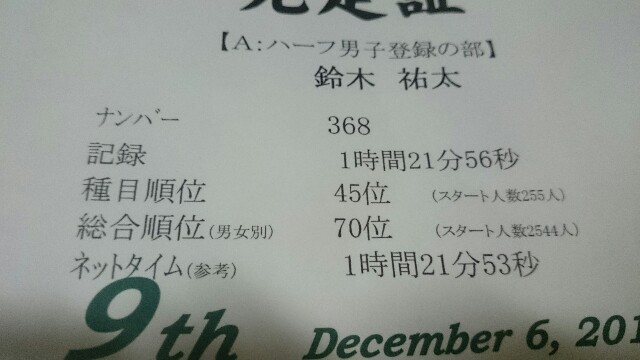 完走証
【A：ハーフ男子登録の部】
鈴木 祐太
ナンバー 368
記録 1時間21分56秒
種目順位 45位 (スタート人数255人)
総合順位(男女別) 70位 (スタート人数2544人)
ネットタイム(参考) 1時間21分53秒
9th December 6, 201